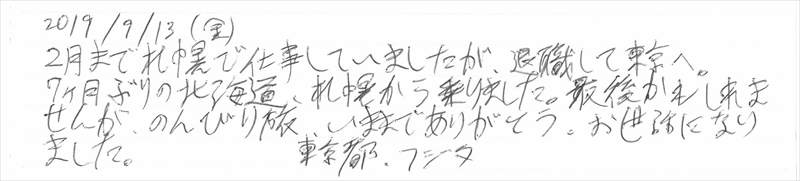 2019/9/13(金)
2月まで札幌で仕事していましたが、退職して東京へ。
7ヶ月ぶりの北海道、札幌から乗りました。最後かもしれま
せんが、のんびり旅、いままでありがとう。お世話になり
ました。 東京都、フジタ